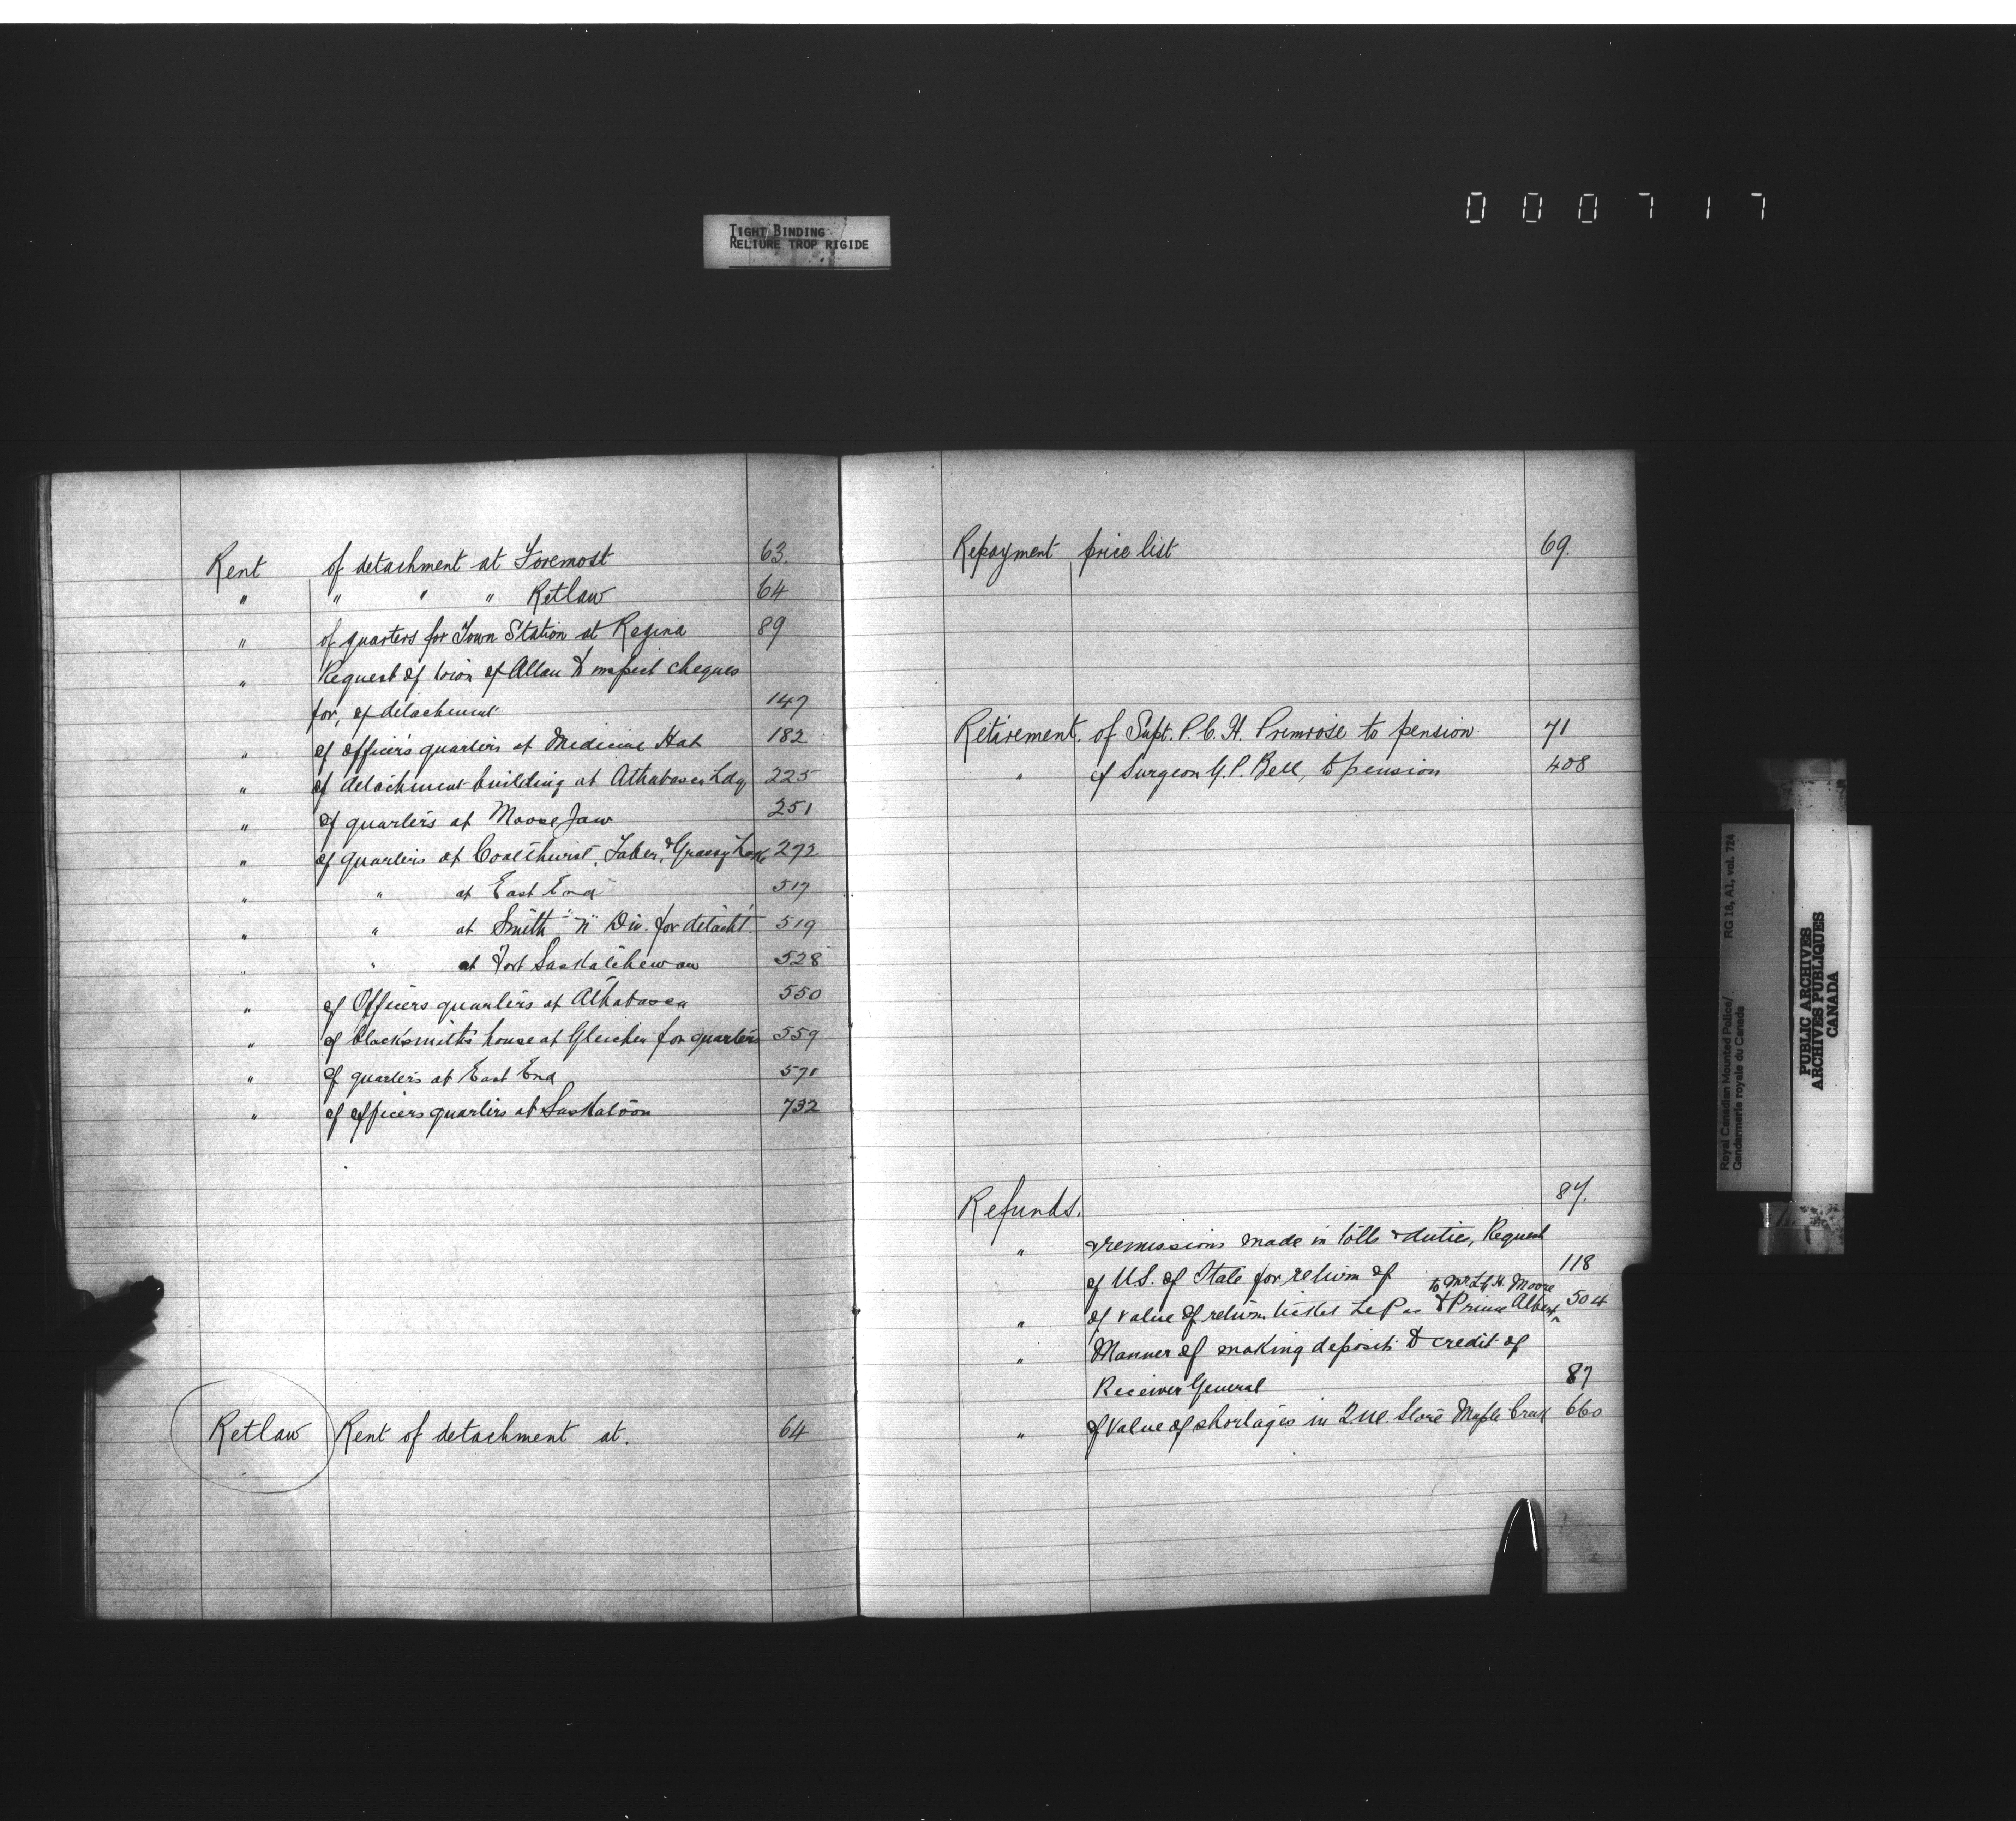 0 0 0 7 1 7
TIGHT BINDING
RELIURE TROP RIGIDE
Rent of detachment at Foremost 63.
" " " " Retlaw 64
" of quarters for Town Station at Regina 89
" Request of town of Allan to inspect cheques
for, of detachment 147
" of officers quarters at Medicine Hat 182
" of detachment building at Athabasca Ldg 225
" of quarters at Moose Jaw 251
" of quarters at Coalhurst, Taber, & Grassy Lake 272
" " at East End 517
" " at Smith "N" Div. for detacht. 519
" " at Fort Saskatchewan 528
" of Officers quarters at Athabasca 550
" of blacksmith's house at Gleichen for quarters 559
" of quarters at East End 571
" of officers quarters at Saskatoon 732
Retlaw Rent of detachment at. 64
Repayment price list 69.
Retirement of Supt. P.C.H. Primrose to pension 71
" of Surgeon G.P. Bell, to pension 408
Refunds. 87.
" & remissions made in tolls & duties, Request
of U.S. of State for return of 118
to Mr. H. Moore
" of value of return ticket Le Pas to Prince Albert 504
" Manner of making deposits to credit of
Receiver General 87
" of Value of shortages in Store Maple Creek 660
Royal Canadian Mounted Police/
Gendarmerie royale du Canada
RG 18, A1, vol. 724
PUBLIC ARCHIVES
ARCHIVES PUBLIQUES
CANADA